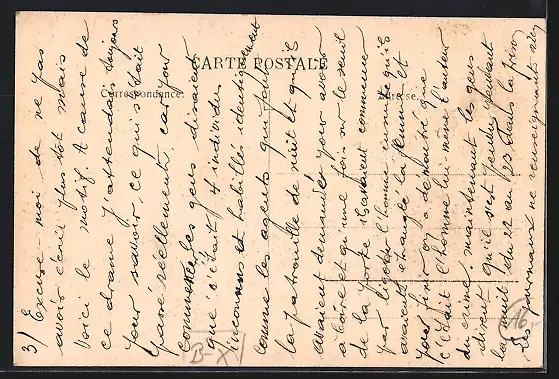 CARTE POSTALE
Correspondance.
Adresse.
3) Excuse-moi de ne pas
avoir écrit plus tôt mais
voici le motif. A cause de
ce drame j'attendais toujours
pour savoir ce qui s'était
passé réellement, car pour
commencer les gens disaient
que c'était 4 individus
inconnus et habillés identiquement
comme les agents qui font
la patrouille de nuit et qui
avaient demandé pour avoir
à boire et qu'une fois sur le seuil
de la porte avaient commencé
par ligoter l'homme ensuite qu'ils
avaient étranglé la femme et
pour finir on a démontré que
c'était l'homme lui-même l'auteur
du crime. maintenant les gens
disent qu'il s'est pendu pendant
la nuit du 22 au 23 dans la prison
les journaux ne renseignent rien
B-X
16,-